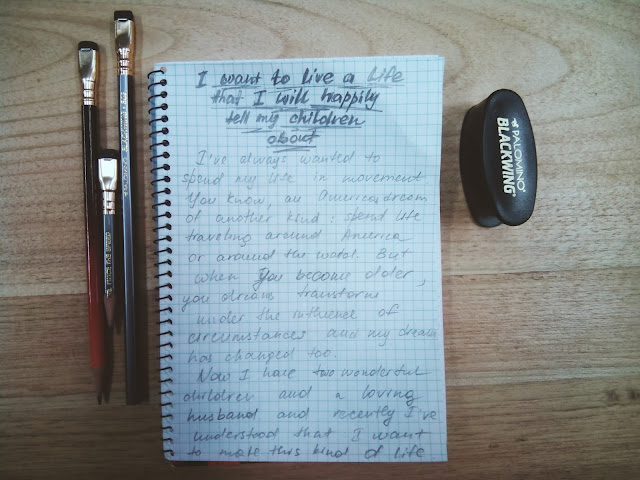 I want to live a life
that I will happily
tell my children
about
I've always wanted to
spend my life in movement
You know, an American dream
of another kind: spend life
traveling around America
or around the world. But
when you become older,
you dreams transform
under the influence of
circumstances and my dream
has changed too.
Now I have two wonderful
children and a loving
husband and recently I've
understood that I want
to make this kind of life
PALOMINO
BLACKWING